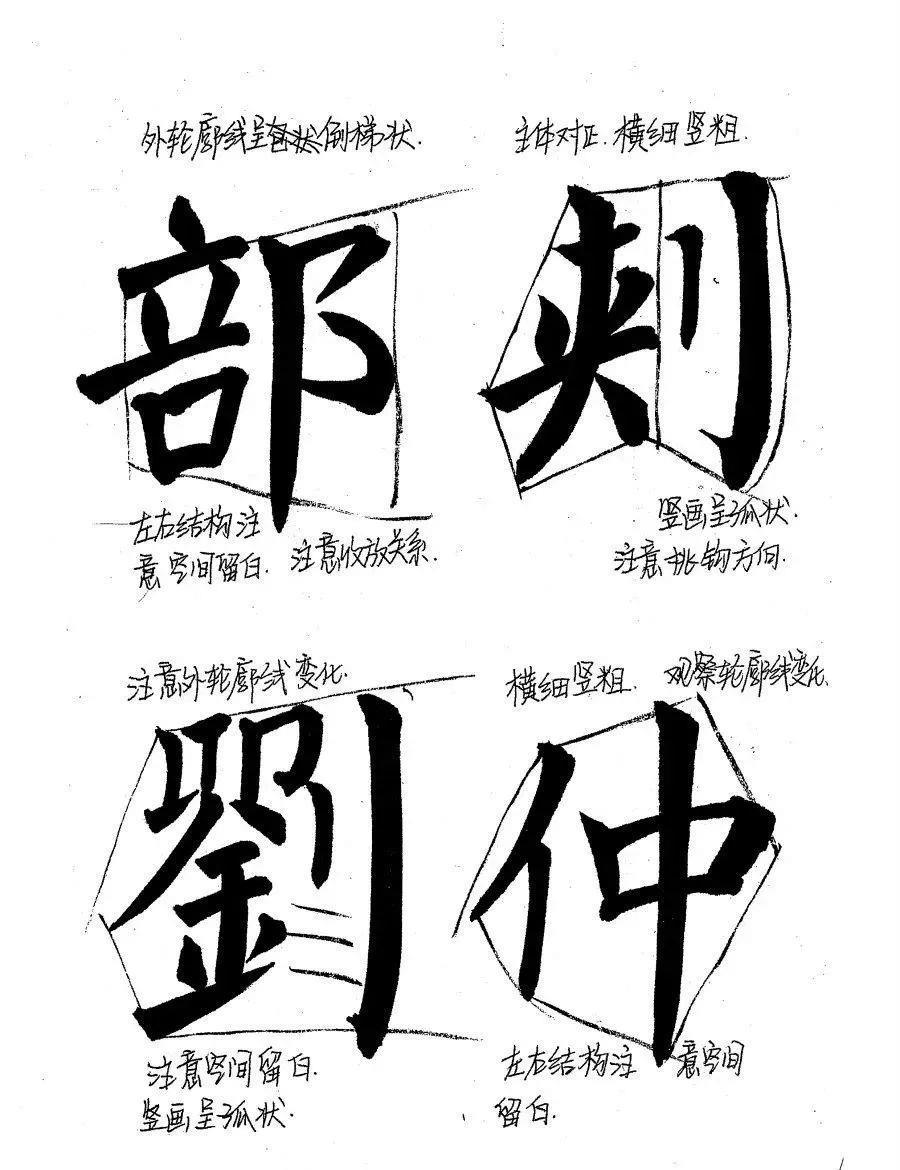 外轮廓线呈倒梯状.
部
左右结构注
意空间留白. 注意收放关系.
主体对正. 横细竖粗.
刾
竖画呈弧状.
注意挑钩方向.
注意外轮廓线变化.
劉
注意空间留白.
竖画呈弧状.
横细竖粗. 观察轮廓线变化.
仲
左右结构注 意空间
留白.